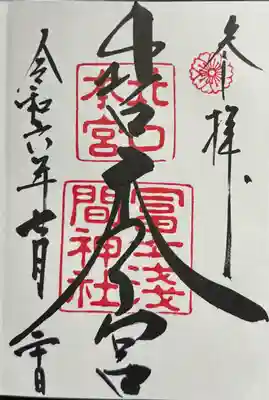 奉拝
北口本宮
北口
本宮
冨士淺
間神社
令和六年七月二十日